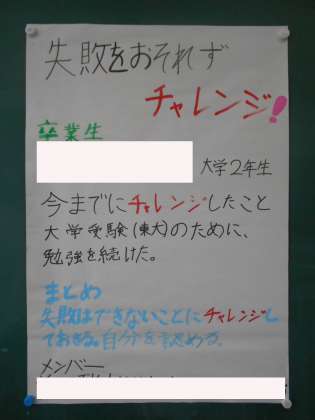 失敗をおそれず
チャレンジ!
卒業生
大学2年生
今までにチャレンジしたこと
大学受験(東大)のために、
勉強を続けた。
まとめ
失敗はできないことにチャレンジし
ておきる。自分を認める。
メンバー